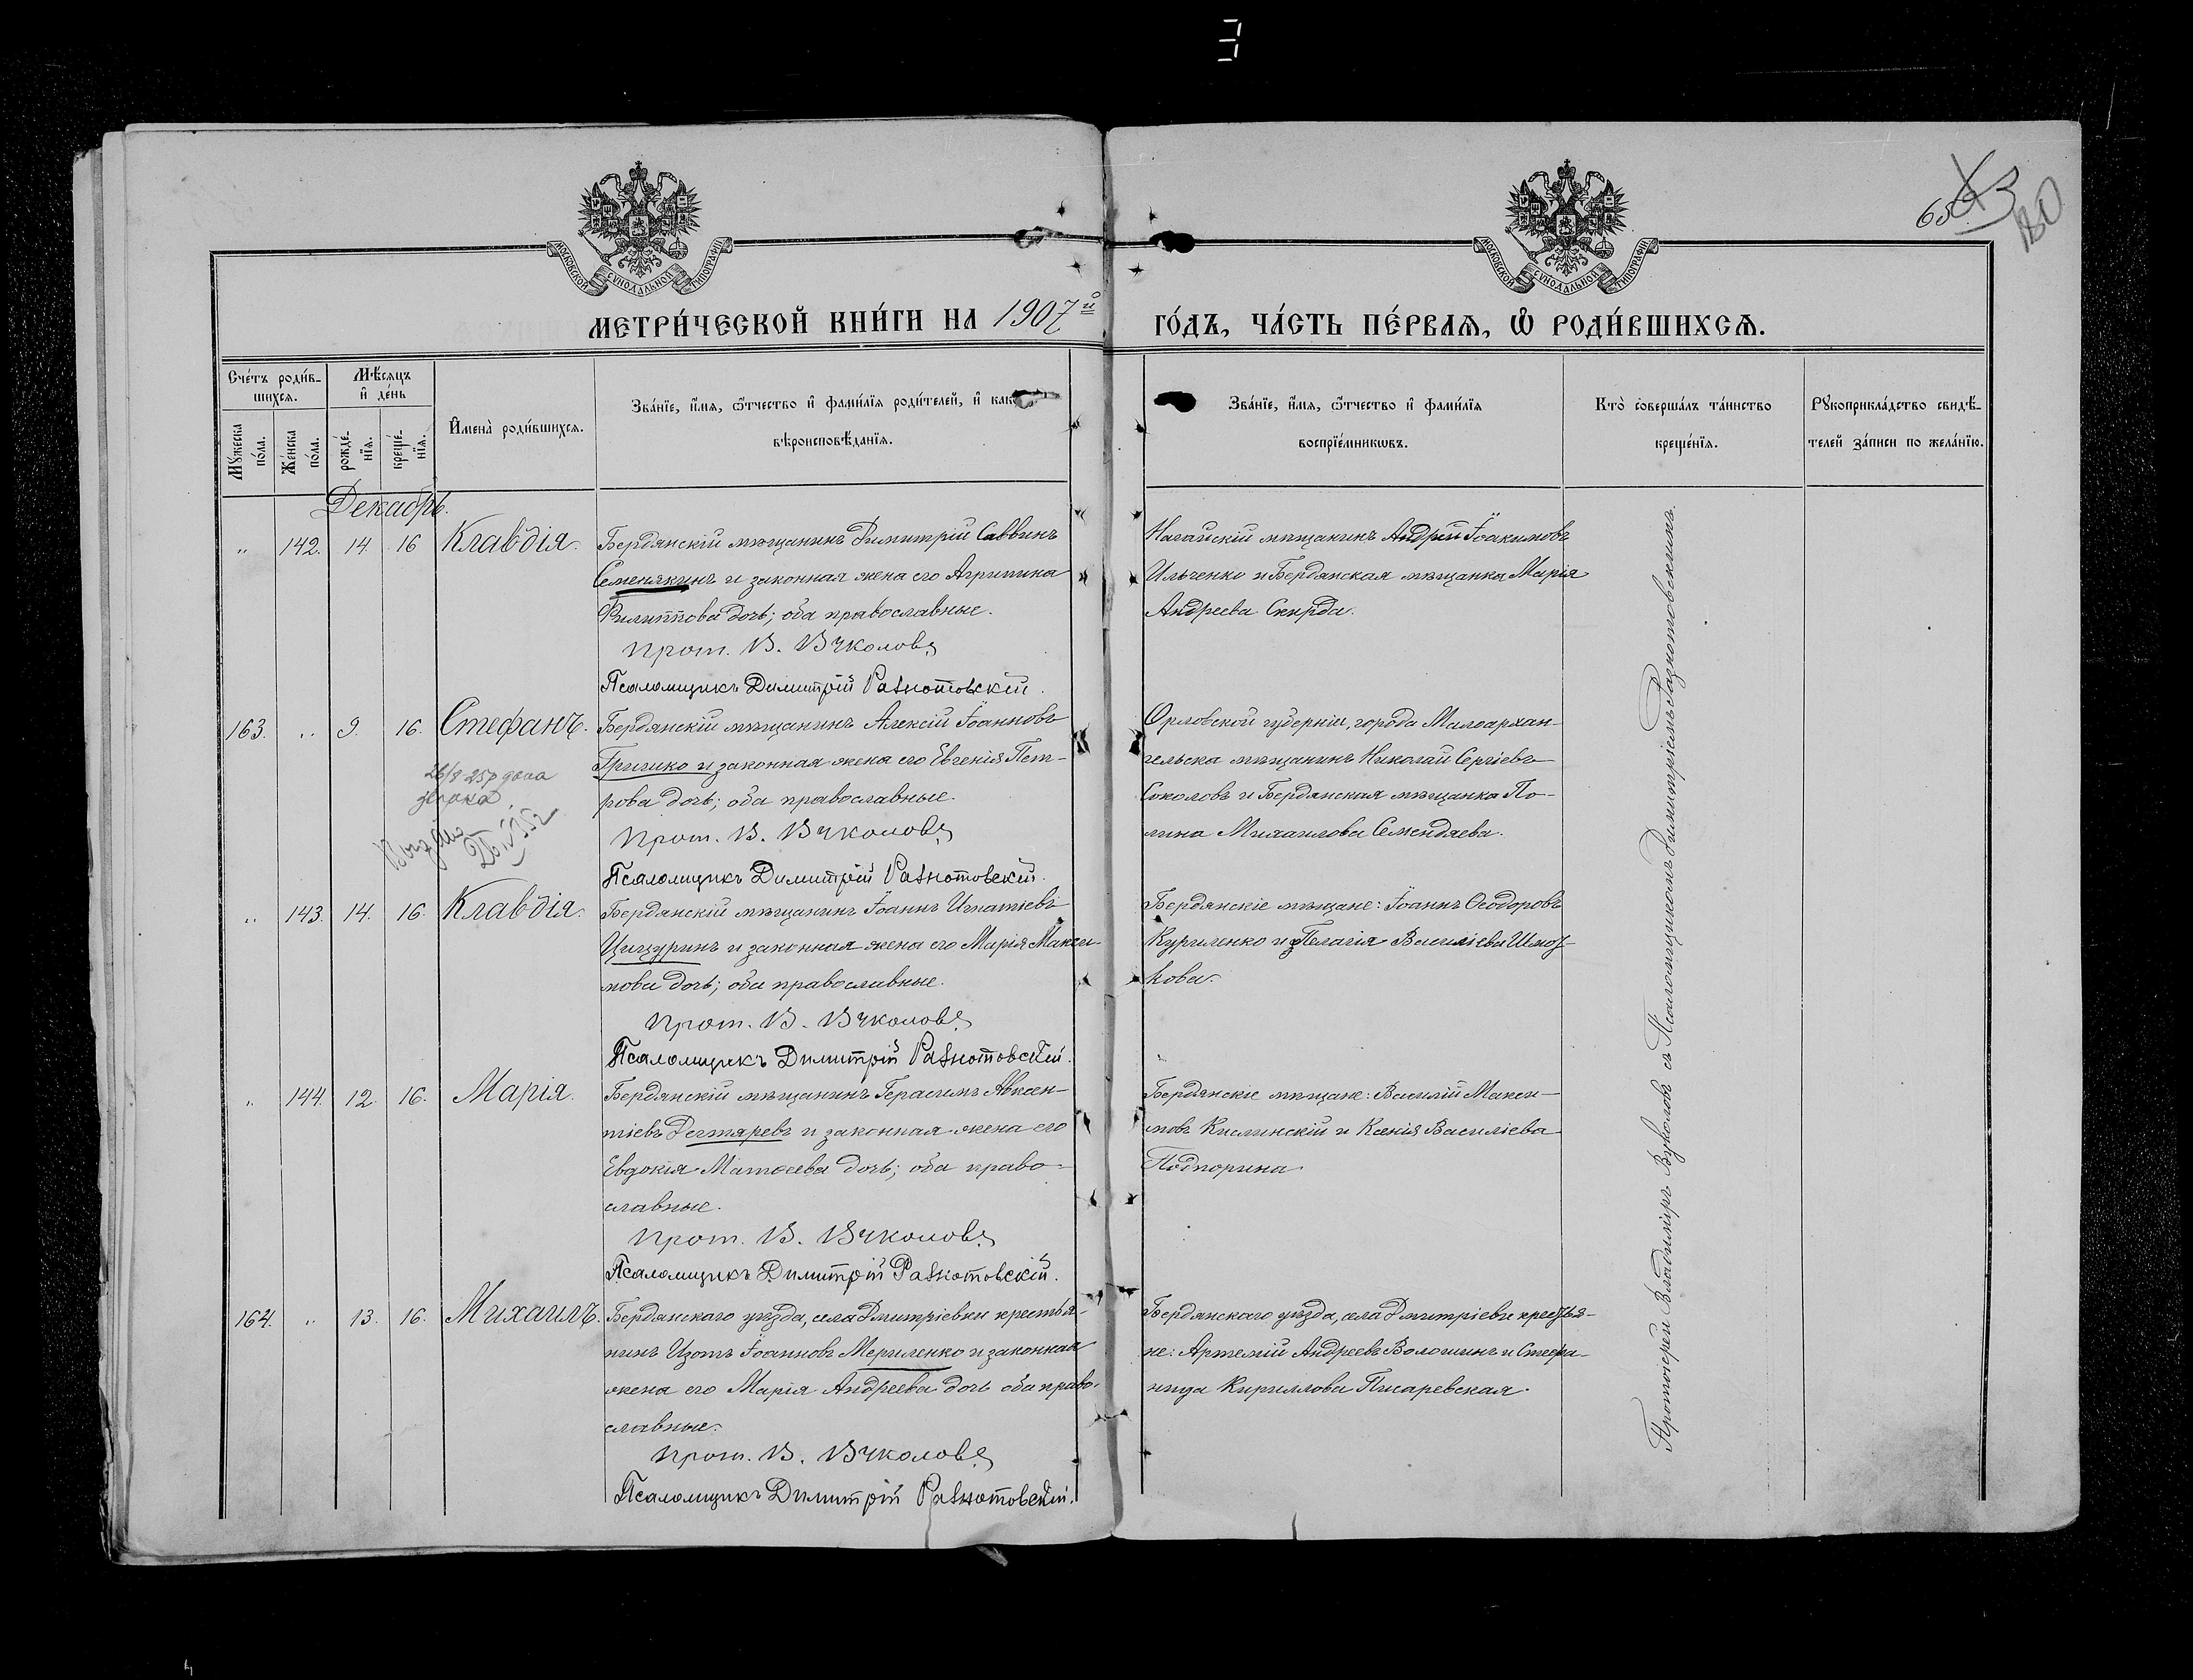 З
65
63
180
МОСКОВСКОЙ СѴНОДАЛЬНОЙ ТИПОГРАФІИ
МОСКОВСКОЙ СѴНОДАЛЬНОЙ ТИПОГРАФІИ
МЕТРИ́ЧЕСКОЙ КНИ́ГИ НА 1907й
ГО́ДЪ, ЧА́СТЬ ПЕ́РВАѦ, Ѡ҆ РОДИ́ВШИХСѦ.
Сче́тъ роди́в-
шихсѧ.
Мѣ́сѧцъ
и҆ де́нь
Мꙋ́жеска
по́ла.
Же́нска
по́ла.
рожде́-
нїѧ.
креще́-
нїѧ.
И҆мена̀ роди́вшихсѧ.
Зва́нїе, и҆́мѧ, ѻ҆́тчество и҆ фами́лїѧ роди́телей, и҆ како
вѣроисповѣ́данїѧ.
Зва́нїе, и҆́мѧ, ѻ҆́тчество и҆ фами́лїѧ
воспрїе́мникѡвъ.
Кто̀ соверша́лъ та́инство
креще́нїѧ.
Рꙋкоприкла́дство свидѣ́-
телей за́писи по жела́нїю.
Декабрь.
" 142. 14. 16 Клавдія. Бердянскій мѣщанинъ Димитрій Саввинъ
Семенякинъ и законная жена его Агрипина
Филиппова дочь; оба православные.
Прот. В. Вуколовъ
Псаломщикъ Димитрій Разнотовскій.
Нагайскій мѣщанинъ Андрей Іоакимовъ
Ильченко и Бердянская мѣщанка Марія
Андреева Скирда.
163. " 9. 16. Стефанъ. Бердянскій мѣщанинъ Алексій Іоанновъ
Григико и законная жена его Евгенія Пет-
рова дочь; оба православные.
Прот. В. Вуколовъ
Псаломщикъ Димитрій Разнотовскій.
26/8 25р дана
Орловской губерніи, города Малоархан-
гельска мѣщанинъ Николай Сергіевъ
Соколовъ и Бердянская мѣщанка По-
лина Михаилова Семендяева.
" 143. 14. 16. Клавдія. Бердянскій мѣщанинъ Іоаннъ Игнатіевъ
Цицуринъ и законная жена его Марія Макси-
мова дочь; оба православные.
Прот. В. Вуколовъ
Псаломщикъ Димитрій Разнотовскій.
Бердянскіе мѣщане: Іоаннъ Ѳеодоровъ
Куриленко и Пелагія Василіева
кова.
" 144. 12. 16. Марія. Бердянскій мѣщанинъ Герасимъ Авксен-
тіевъ Дегтяревъ и законная жена его
Евдокія Матѳеева дочь; оба право-
славные.
Прот. В. Вуколовъ
Псаломщикъ Димитрій Разнотовскій.
Бердянскіе мѣщане: Василій Макси-
мовъ Кислинскій и Ксенія Василіева
Подпорина
164. " 13. 16. Михаилъ. Бердянскаго уѣзда, села Дмитріевки крестья-
нинъ Изотъ Іоанновъ Мериленко и законная
жена его Марія Андреева дочь оба право-
славные.
Прот. В. Вуколовъ
Псаломщикъ Димитрій Разнотовскій.
Бердянскаго уѣзда, села Дмитріевки крестья-
не: Артемій Андреевъ Волошинъ и Стефа-
нида Кириллова Писаревская.
Протоіерей Владиміръ Вуколовъ съ Псаломщикомъ Димитріемъ Разнотовскимъ.